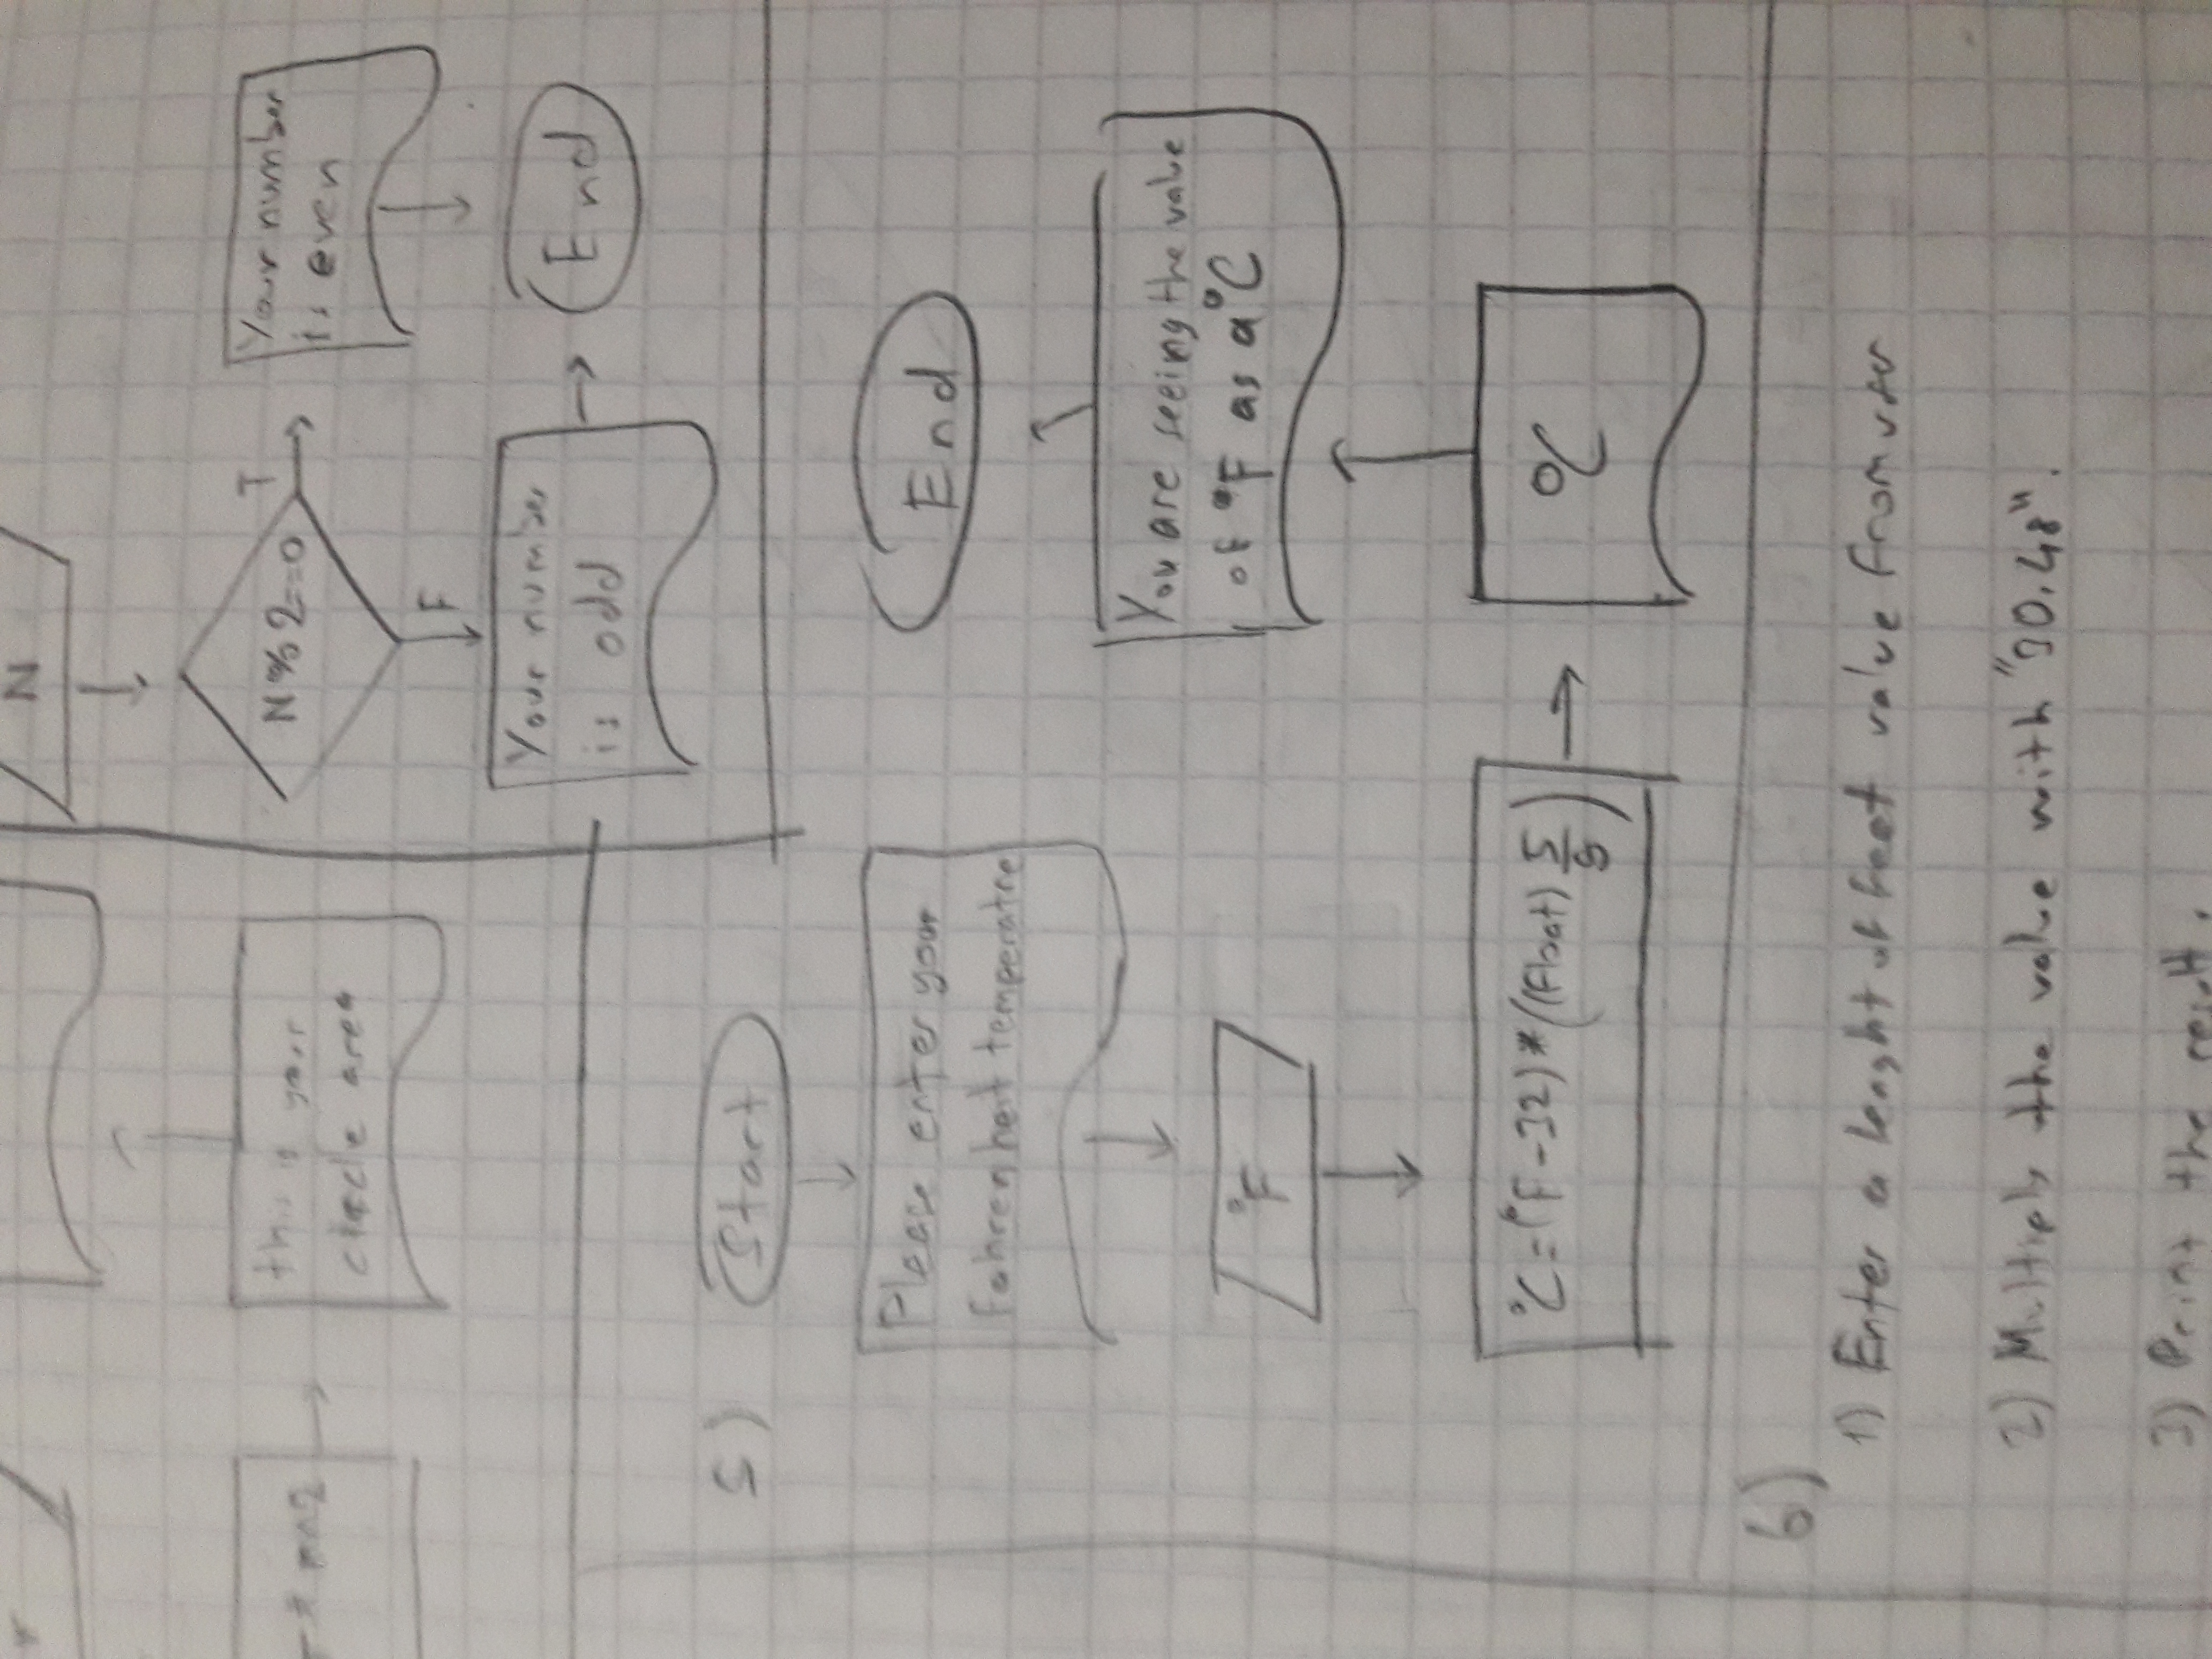 N
N%2==0
T
Your number
is even
F
Your number
is odd
End
r^2
this is your
circle area
5)
Start
Please enter your
fahrenheit temperatre
°F
°C=(°F-32)*((float) 5/9)
°C
You are seeing the value
of °F as a °C
End
6)
1) Enter a lenght of feet value from user
2) Multiply the value with "30.48".
3) Print the result.